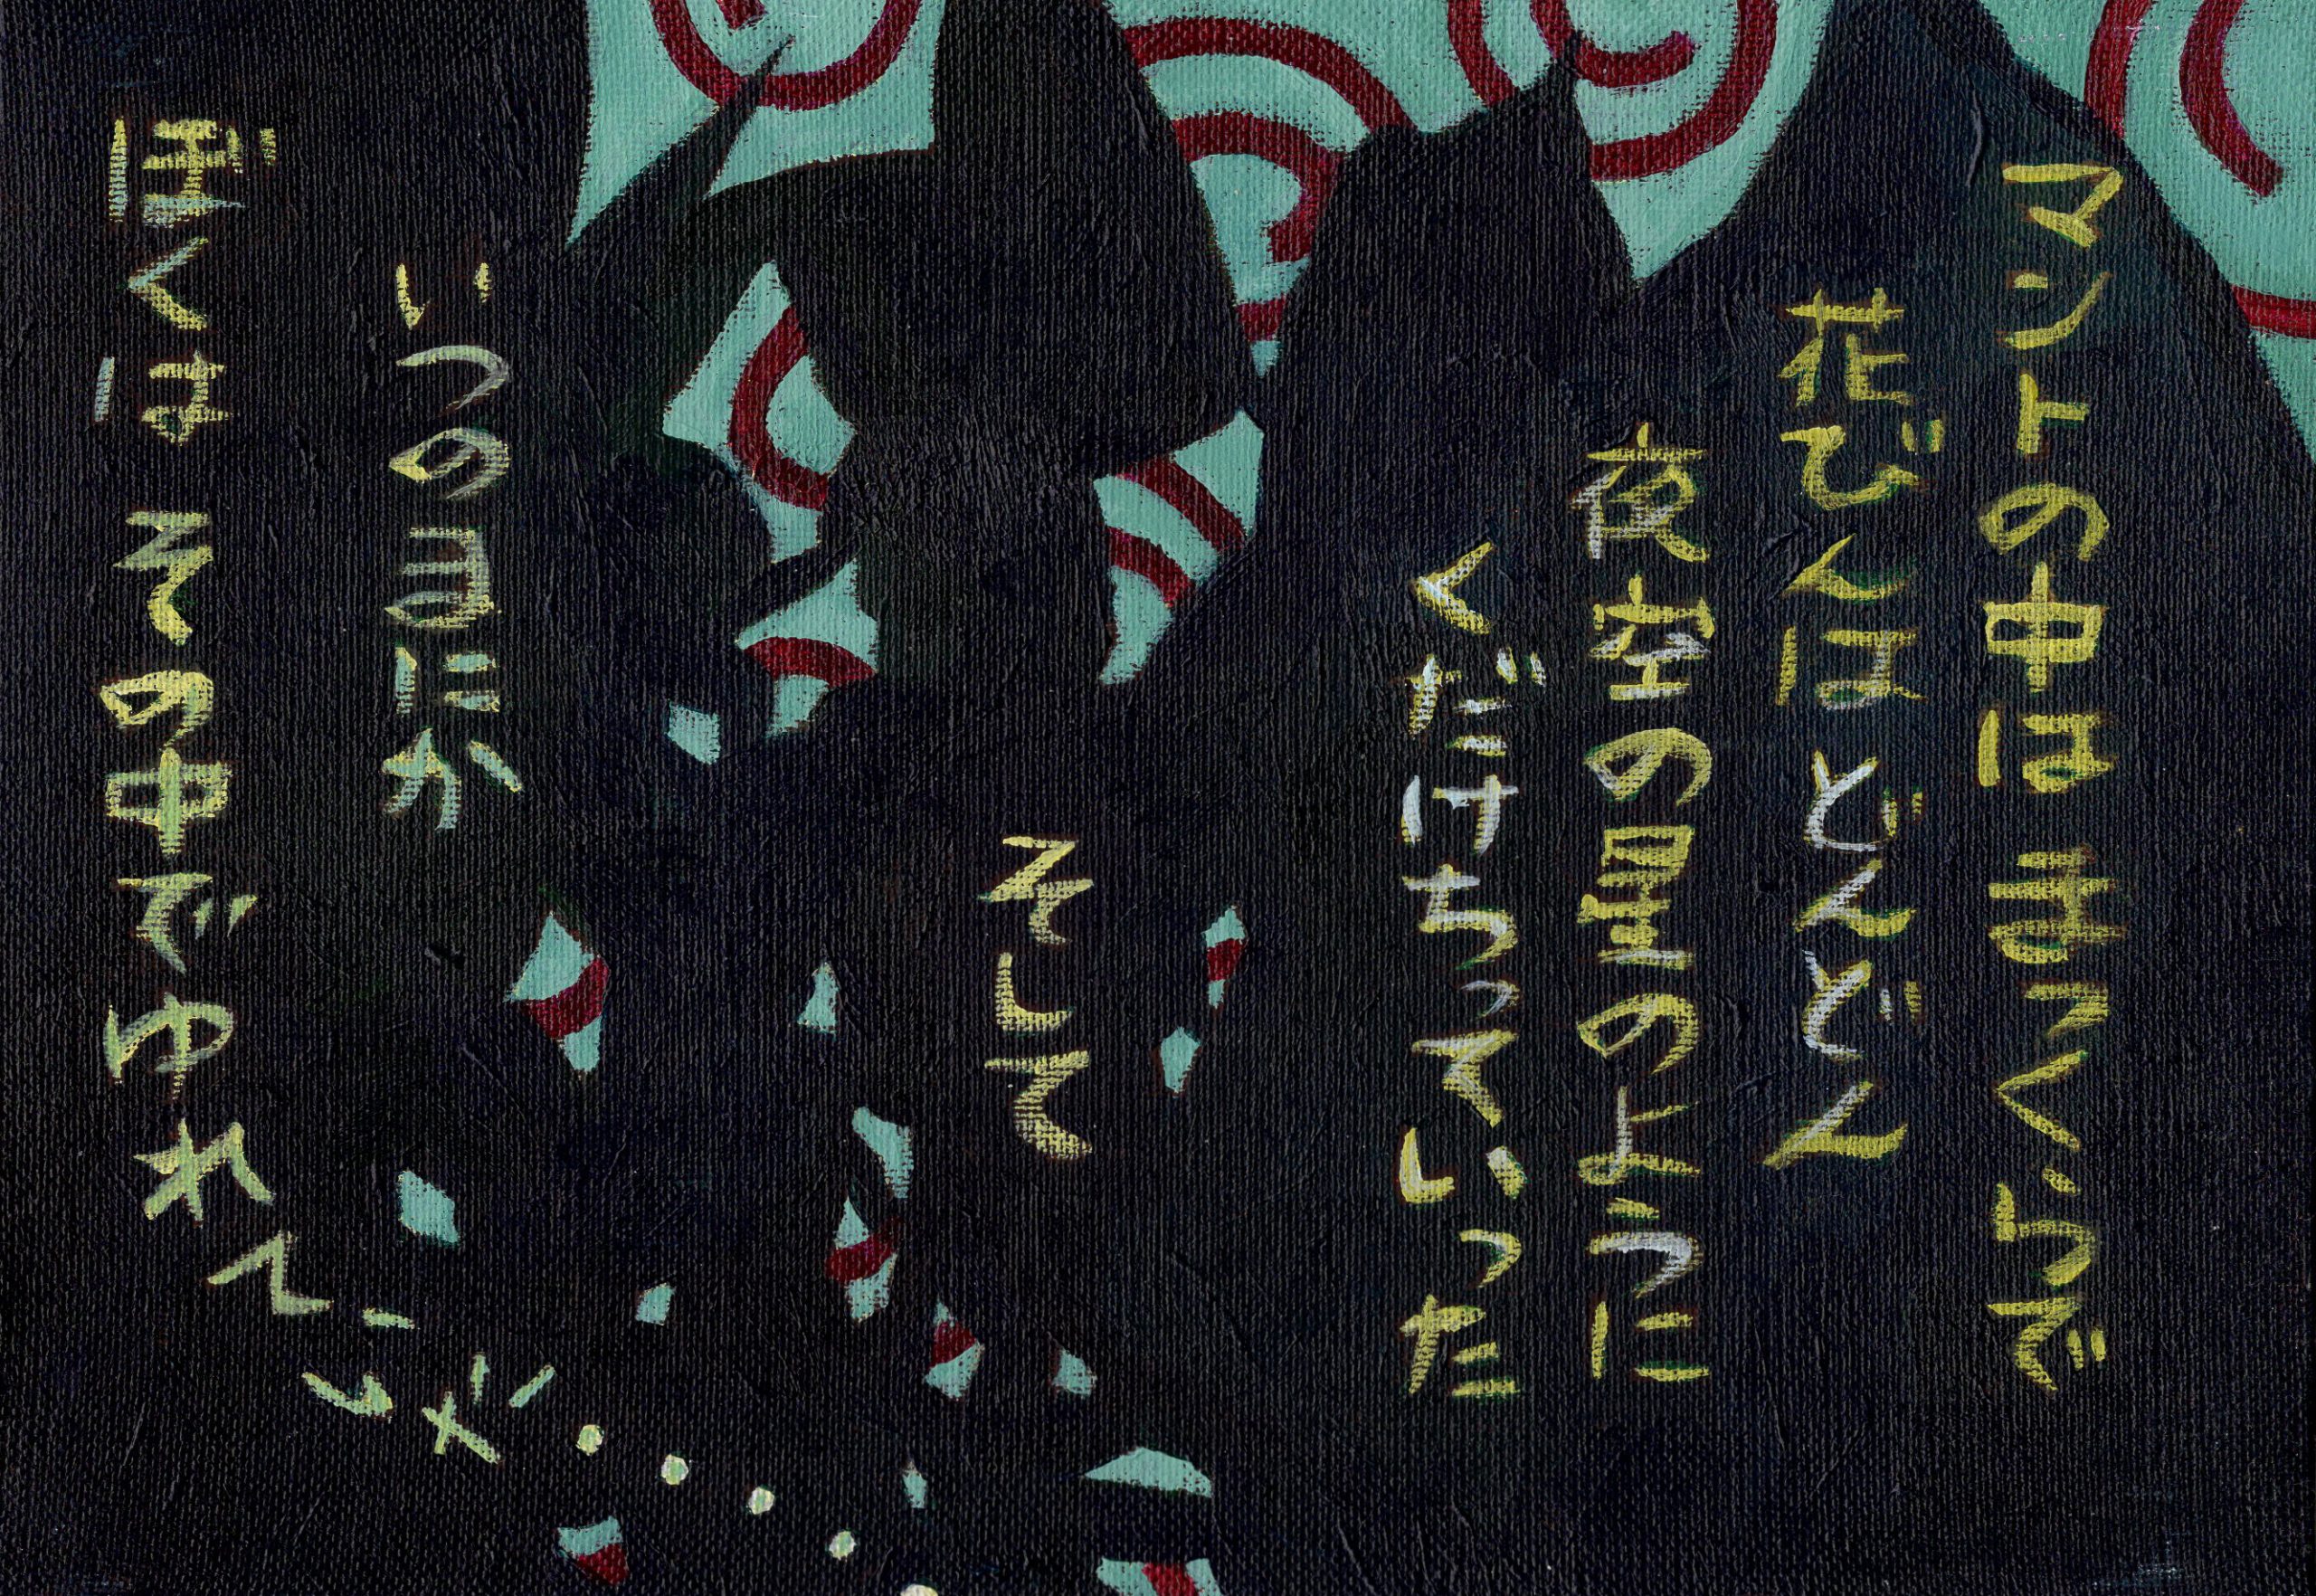 マントの中は まっくらで
花びんは どんどん
夜空の星のように
くだけちっていった
そして
いつのまにか
ぼくは その中で ゆれていた・・・・・